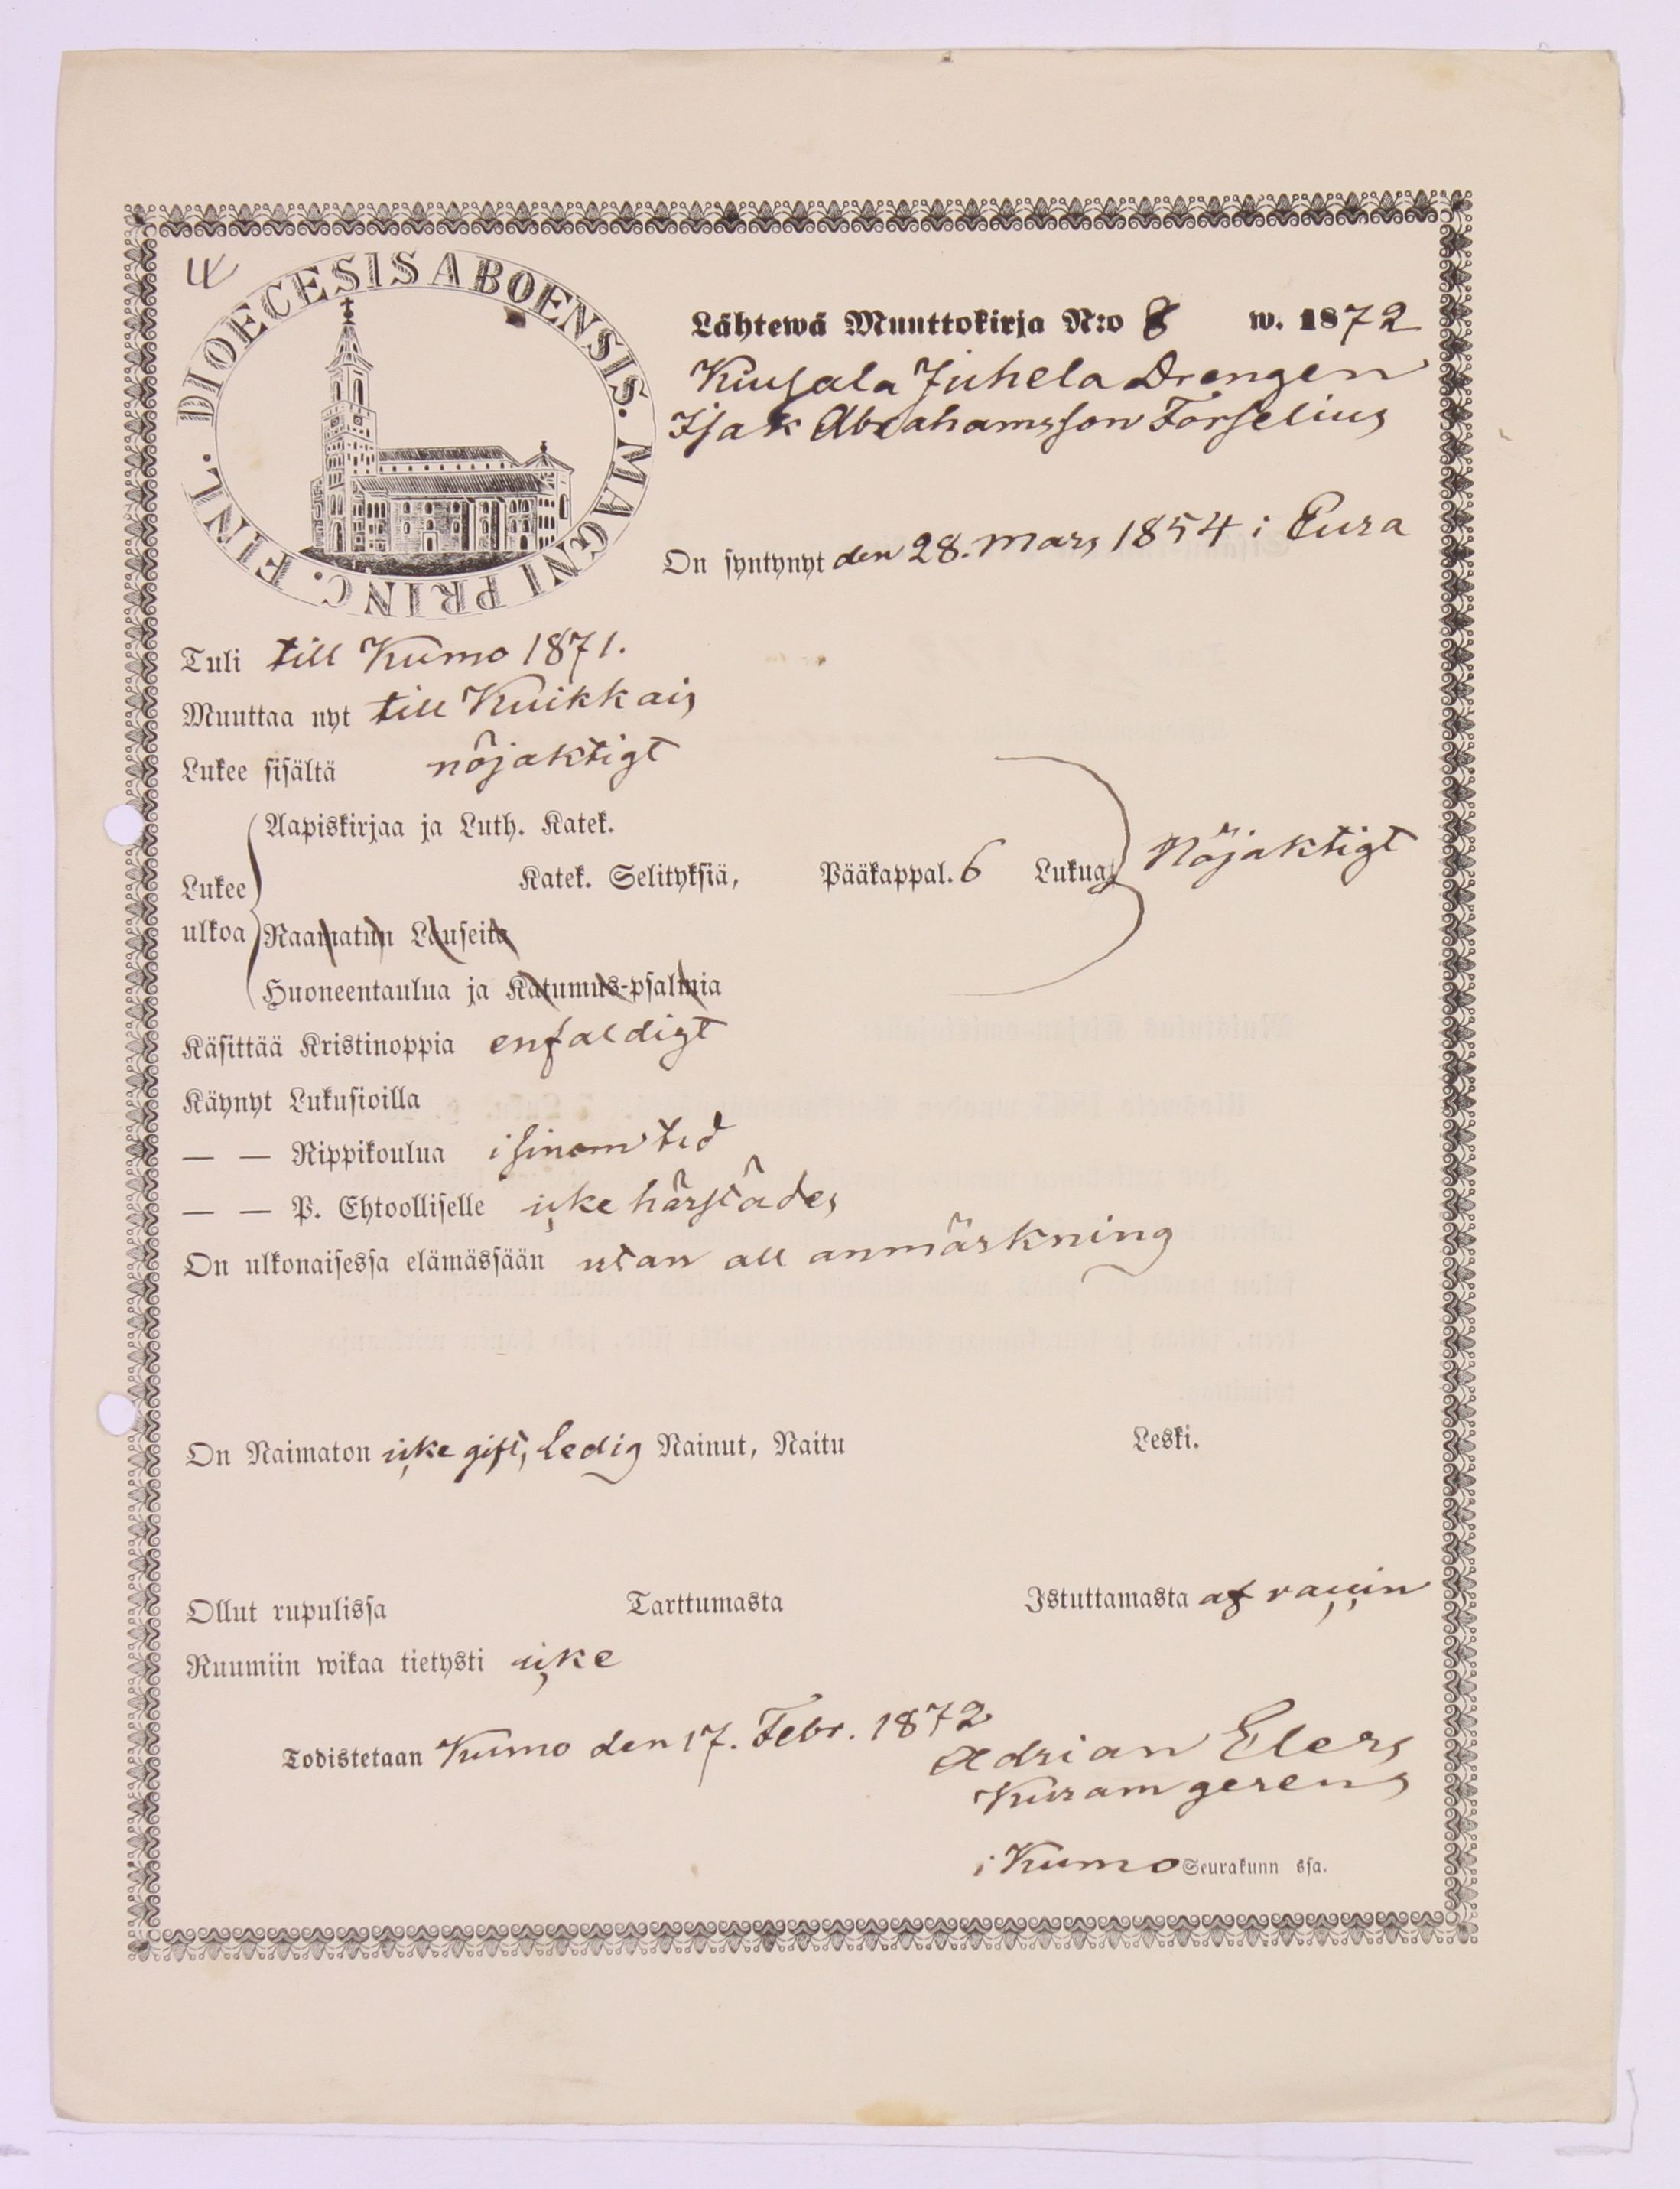 DIOECESIS ABOENSIS. MAGNI PRINC. FINL.
Lähtewä Muuttokirja N:o 8 w. 1872
Kuusala Juhela Drengen
Isak Abrahamsson Forselius
On syntynyt den 28. Mars 1854 i Eura
Tuli till Kumo 1871.
Muuttaa nyt till Kuikkais
Lukee sisältä nöjaktigt
Lukee ulkoa
Aapiskirjaa ja Luth. Katek.
Katek. Selityksiä, Pääkappal. 6 Lukua Nöjaktigt
Raamatun Lauseita
Huoneentaulua ja Katumus-psalmia
Käsittää Kristinoppia enfaldigt
Käynyt Lukusioilla
— — Rippikoulua i sinom tid
— — P. Ehtoolliselle icke härstädes
On ulkonaisessa elämässään utan all anmärkning
On Naimaton icke gift, Ledig Nainut, Naitu Leski.
Ollut rupulissa Tarttumasta Istuttamasta af vaccin
Ruumiin wikaa tietysti icke
Todistetaan Kumo den 17. Febr. 1872
Adrian Elers
Kuram gerens
i Kumo Seurakunn ssa.